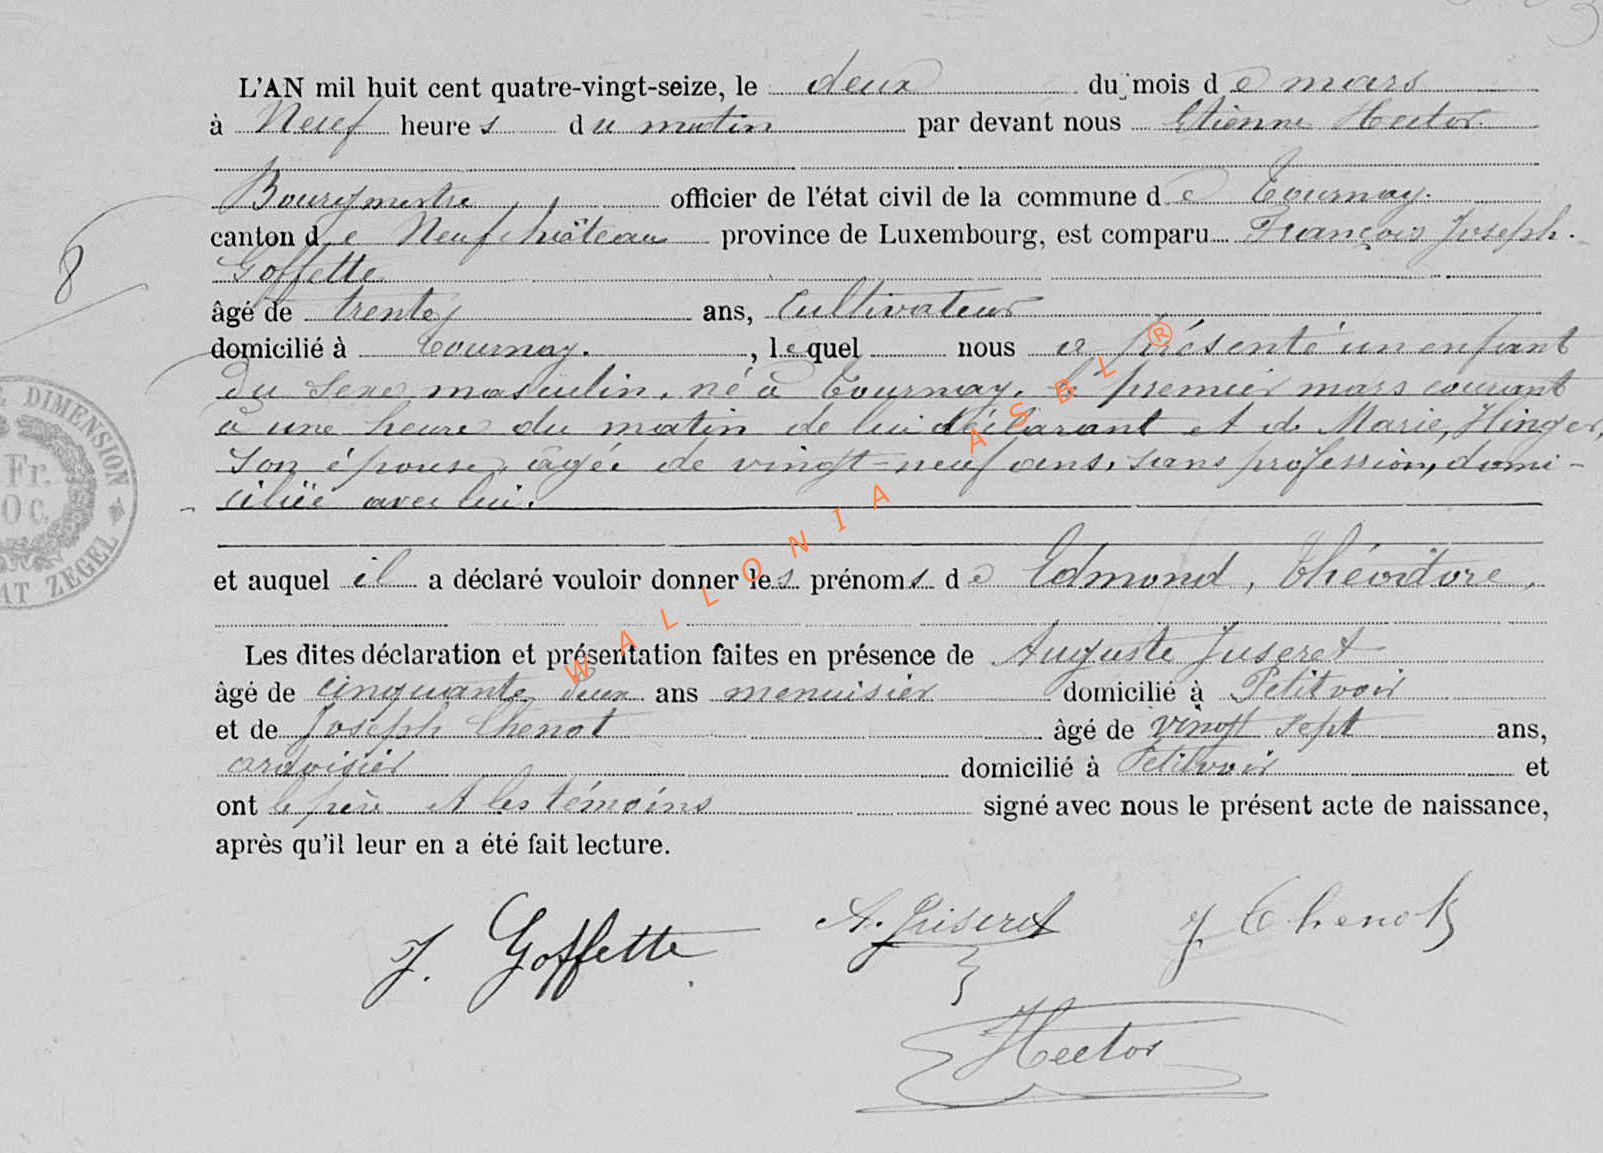 L'AN mil huit cent quatre-vingt-seize, le deux du mois de mars
à Neuf heures du matin par devant nous Etienne Hector
Bourgmestre officier de l'état civil de la commune de Tournay.
canton de Neufchâteau province de Luxembourg, est comparu François Joseph
Goffette
8
âgé de trente ans, Cultivateur
domicilié à Tournay. , lequel nous a présenté un enfant
du sexe masculin, né à Tournay, le premier mars courant
à une heure du matin de lui déclarant et de Marie, Hinger,
son épouse, âgée de vingt-neuf ans, sans profession, domi-
ciliée avec lui.
DIMENSION
Fr.
OC.
ZEGEL
et auquel il a déclaré vouloir donner les prénoms de Edmond, Théodore,
Les dites déclaration et présentation faites en présence de Auguste Juseret
âgé de cinquante deux ans menuisier domicilié à Petitvoir
et de Joseph Thenot âgé de vingt sept ans,
ardoisier domicilié à Petitvoir et
ont le père et les témoins signé avec nous le présent acte de naissance,
après qu'il leur en a été fait lecture.
J. Goffette A. Juseret J. Thenot
Hector
WALLONIA ASBL ®